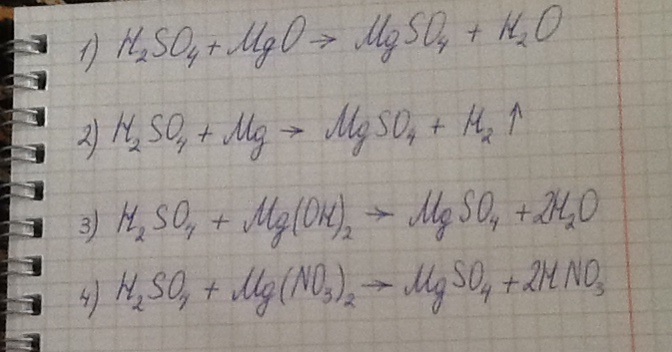 1) H₂SO₄ + MgO → MgSO₄ + H₂O
2) H₂SO₄ + Mg → MgSO₄ + H₂ ↑
3) H₂SO₄ + Mg(OH)₂ → MgSO₄ + 2H₂O
4) H₂SO₄ + Mg(NO₃)₂ → MgSO₄ + 2HNO₃